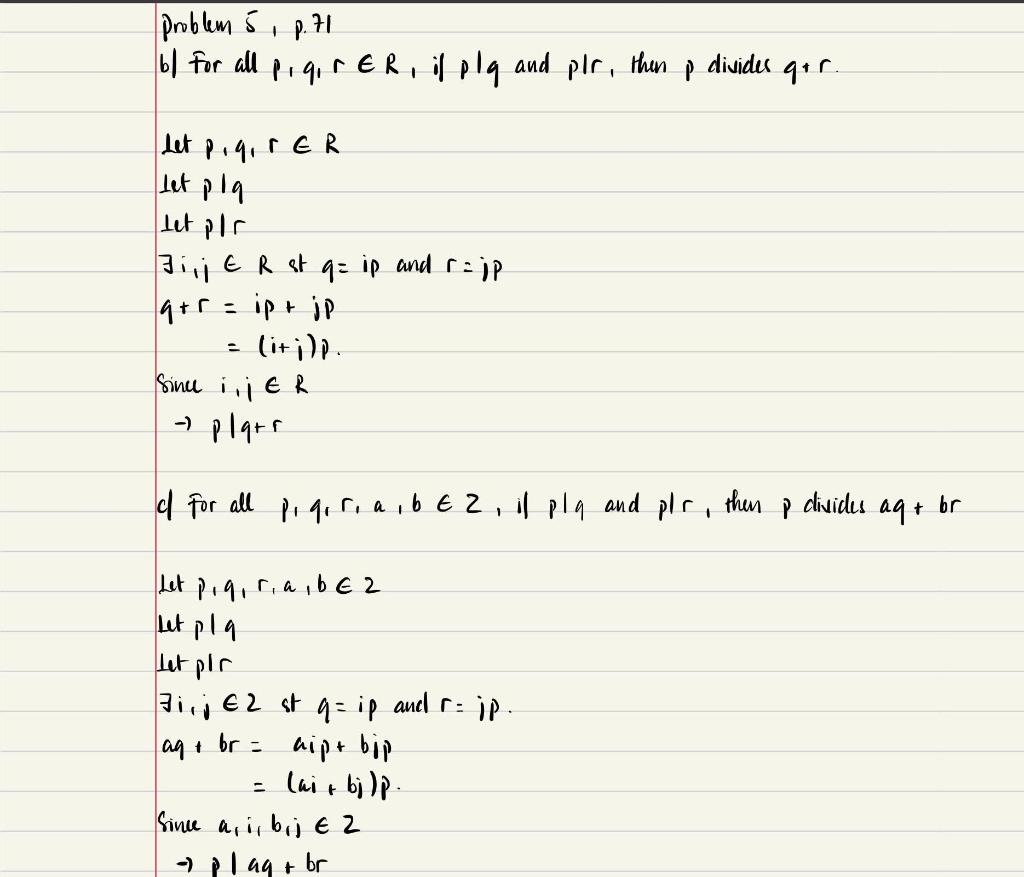 Problem 5, p.71
b) For all p, q, r ∈ R, if p|q and p|r, then p divides q+r.
Let p, q, r ∈ R
Let p|q
Let p|r
∃i,j ∈ R st q = ip and r = jp
q+r = ip + jp
= (i+j)p.
Since i,j ∈ R
→ p|q+r
c) For all p, q, r, a, b ∈ Z, if p|q and p|r, then p divides aq + br
Let p, q, r, a, b ∈ Z
Let p|q
Let p|r
∃i,j ∈ Z st q = ip and r = jp.
aq + br = aip + bjp
= (ai + bj)p.
Since a, i, b, j ∈ Z
→ p | aq + br